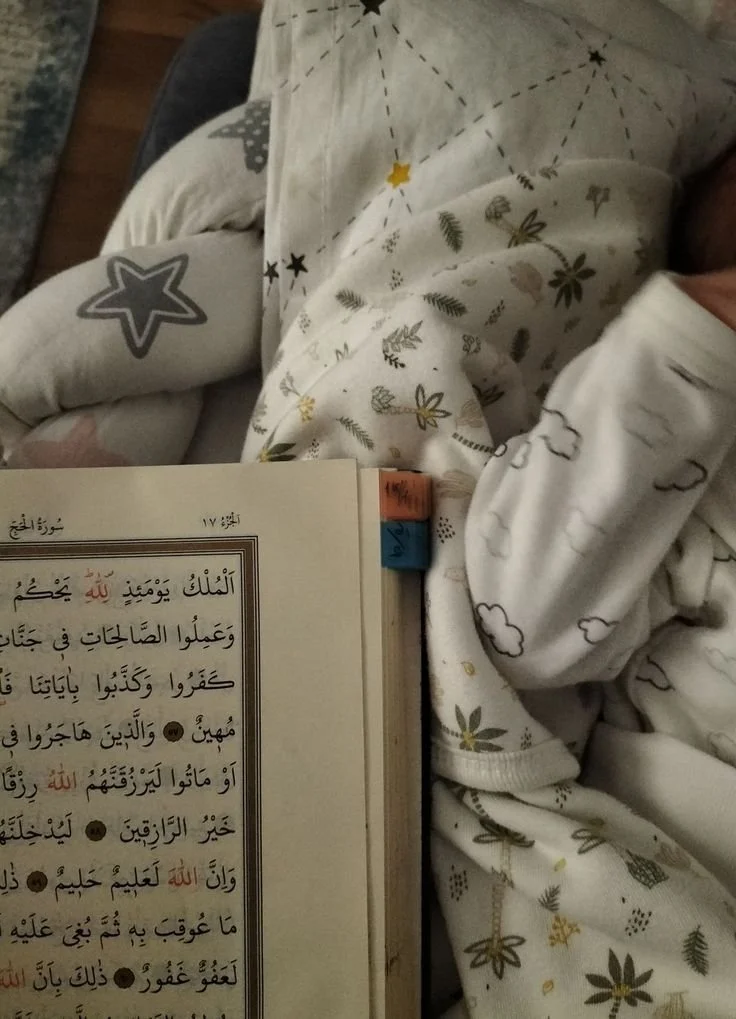 الجُزْءُ ١٧
سُورَةُ الْحَجِّ
اَلْمُلْكُ يَوْمَئِذٍ لِلّٰهِۜ يَحْكُمُ
وَعَمِلُوا الصَّالِحَاتِ ف۪ي جَنَّاتِ
كَفَرُوا وَكَذَّبُوا بِاٰيَاتِنَا
مُه۪ينٌ ﴿٥٧﴾ وَالَّذ۪ينَ هَاجَرُوا ف۪ي
اَوْ مَاتُوا لَيَرْزُقَنَّهُمُ اللّٰهُ رِزْقًا
خَيْرُ الرَّازِق۪ينَ ﴿٥٨﴾
وَاِنَّ اللّٰهَ لَعَل۪يمٌ حَل۪يمٌ ﴿٥٩﴾
مَا عُوقِبَ بِه۪ ثُمَّ بُغِيَ عَلَيْهِ
لَعَفُوٌّ غَفُورٌ ﴿٦٠﴾ ذٰلِكَ بِاَنَّ اللّٰهَ